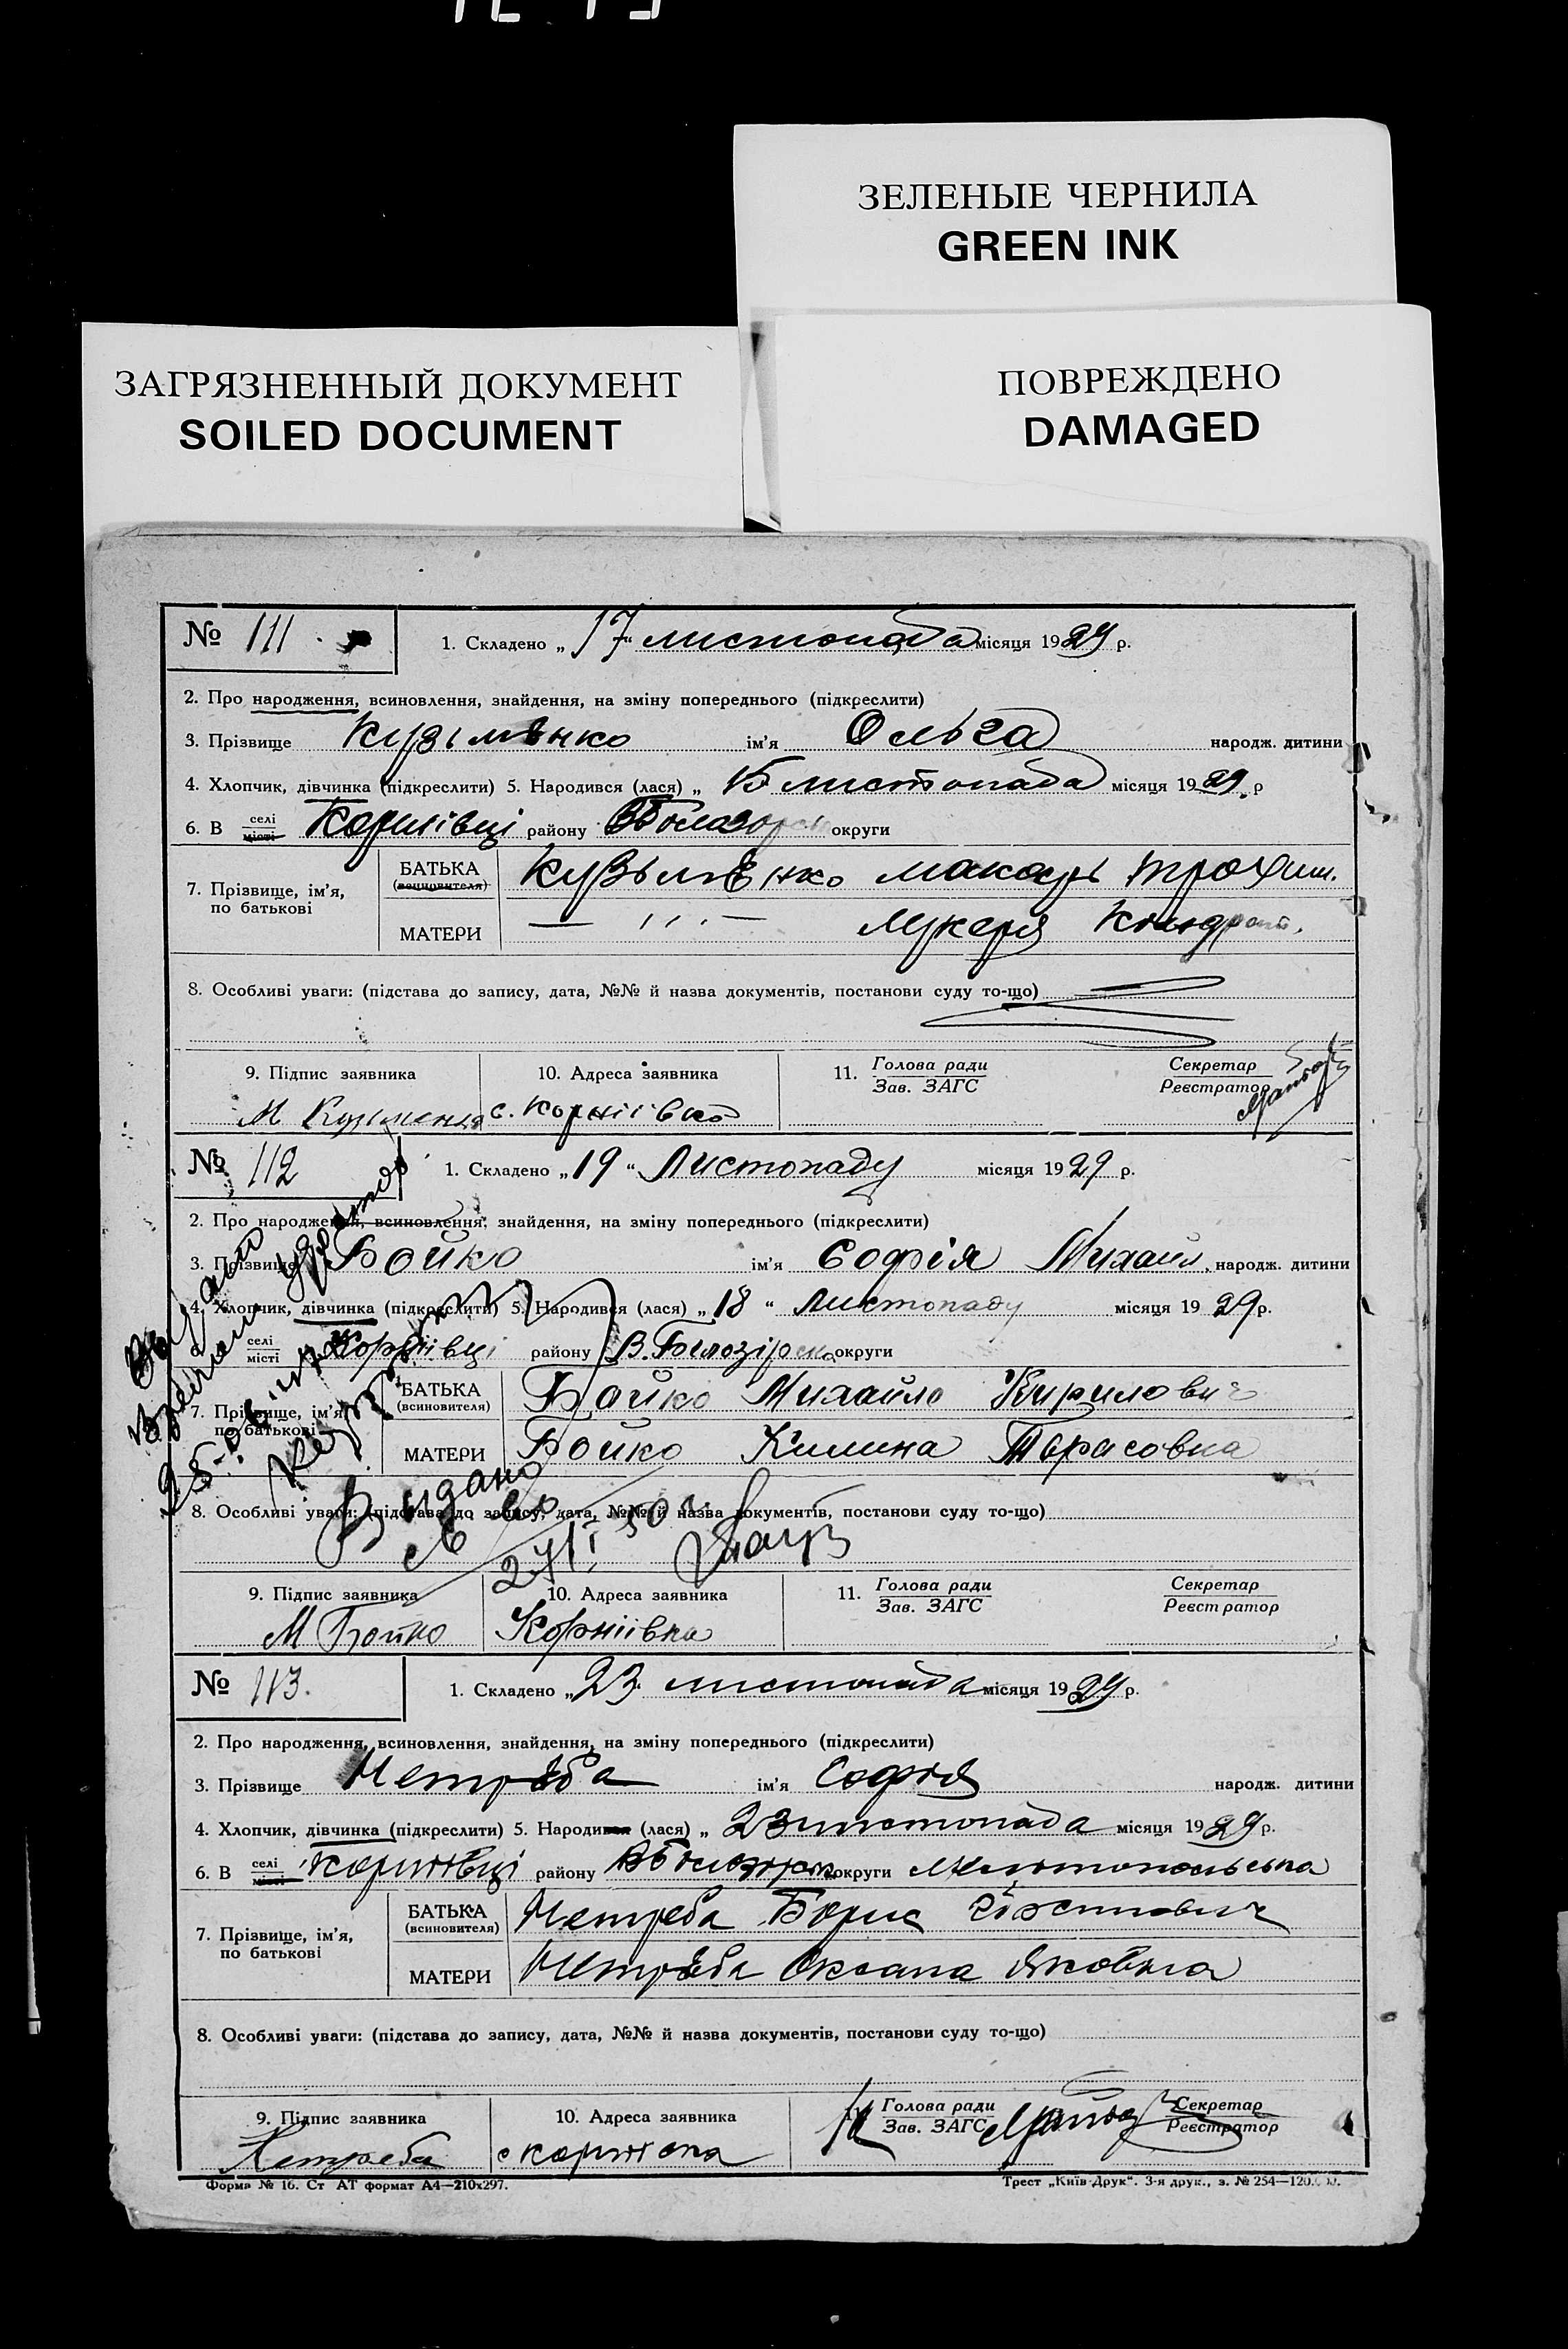 ЗЕЛЕНЫЕ ЧЕРНИЛА
GREEN INK
ЗАГРЯЗНЕННЫЙ ДОКУМЕНТ
SOILED DOCUMENT
ПОВРЕЖДЕНО
DAMAGED
№ 111. 1. Складено „17“ листопада місяця 1929 р.
2. Про народження, всиновлення, знайдення, на зміну попереднього (підкреслити)
3. Прізвище Кузьменко ім'я Ольга народж. дитини
4. Хлопчик, дівчинка (підкреслити) 5. Народився (лася) „ 15 листопада місяця 1929. р
6. В селі місті Корніівці району ВБілозорськ округи
7. Прізвище, ім'я, по батькові
БАТЬКА (всиновителя) Кузьменко Макарь Трохим.
МАТЕРИ — ,,, — Мукеря Кондрат.
8. Особливі уваги: (підстава до запису, дата, №№ й назва документів, постанови суду то-що)
9. Підпис заявника 10. Адреса заявника 11. Голова ради Зав. ЗАГС Секретар Реєстратор
М Кузьменко с. Корніівка
№ 112 1. Складено „19“ Листопаду місяця 1929 р.
2. Про народження, всиновлення, знайдення, на зміну попереднього (підкреслити)
3. Прізвище Бойко ім'я Софія Михайл. народж. дитини
4. Хлопчик, дівчинка (підкреслити) 5. Народився (лася) „18“ Листопаду місяця 1929р.
селі місті Корніівці району В.Білозірськ округи
7. Прізвище, ім'я, по батькові
БАТЬКА (всиновителя) Бойко Михайло Кирилович
МАТЕРИ Бойко Килина Тарасовна
Видано
8. Особливі уваги: (підстава до запису, дата, №№ й назва документів, постанови суду то-що)
9. Підпис заявника 10. Адреса заявника 11. Голова ради Зав. ЗАГС Секретар Реєстратор
М Бойко Корніівка
№ 113. 1. Складено „23“ листопада місяця 1929 р.
2. Про народження, всиновлення, знайдення, на зміну попереднього (підкреслити)
3. Прізвище Нетреба ім'я Софія народж. дитини
4. Хлопчик, дівчинка (підкреслити) 5. Народився (лася) „ 23 листопада місяця 1929р.
6. В селі місті Корніівці району ВБілозірськ округи Мелітопольська
7. Прізвище, ім'я, по батькові
БАТЬКА (всиновителя) Нетреба Борис
МАТЕРИ Нетреба Оксана Яковівна
8. Особливі уваги: (підстава до запису, дата, №№ й назва документів, постанови суду то-що)
9. Підпис заявника 10. Адреса заявника Голова ради Зав. ЗАГС Секретар Реєстратор
Нетреба
Форма № 16. Ст АТ формат А4—210х297. Трест „Київ-Друк“. 3-я друк., з. № 254—120.